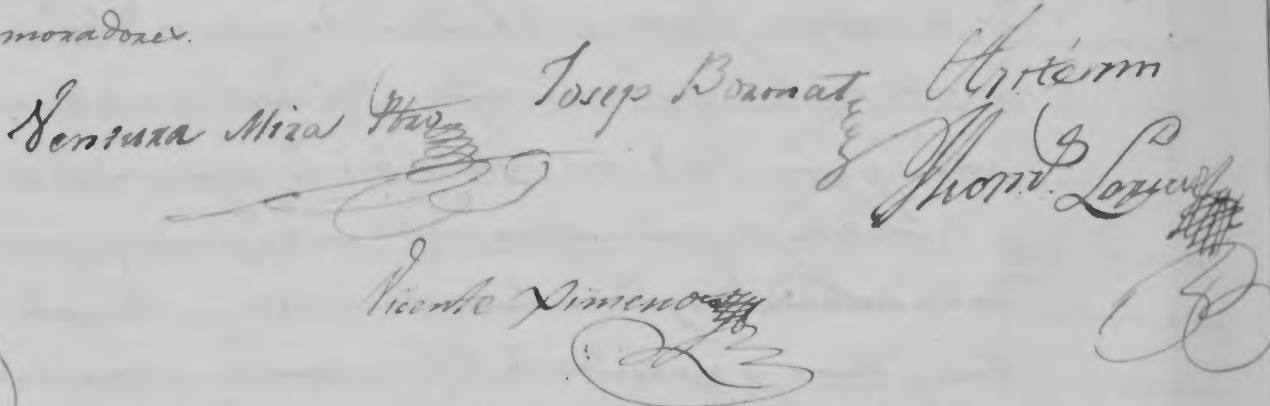 moradores.
Ventura Mira Pbro
Josep Boronat
Ante mi
Thom.
Vicente Ximeno